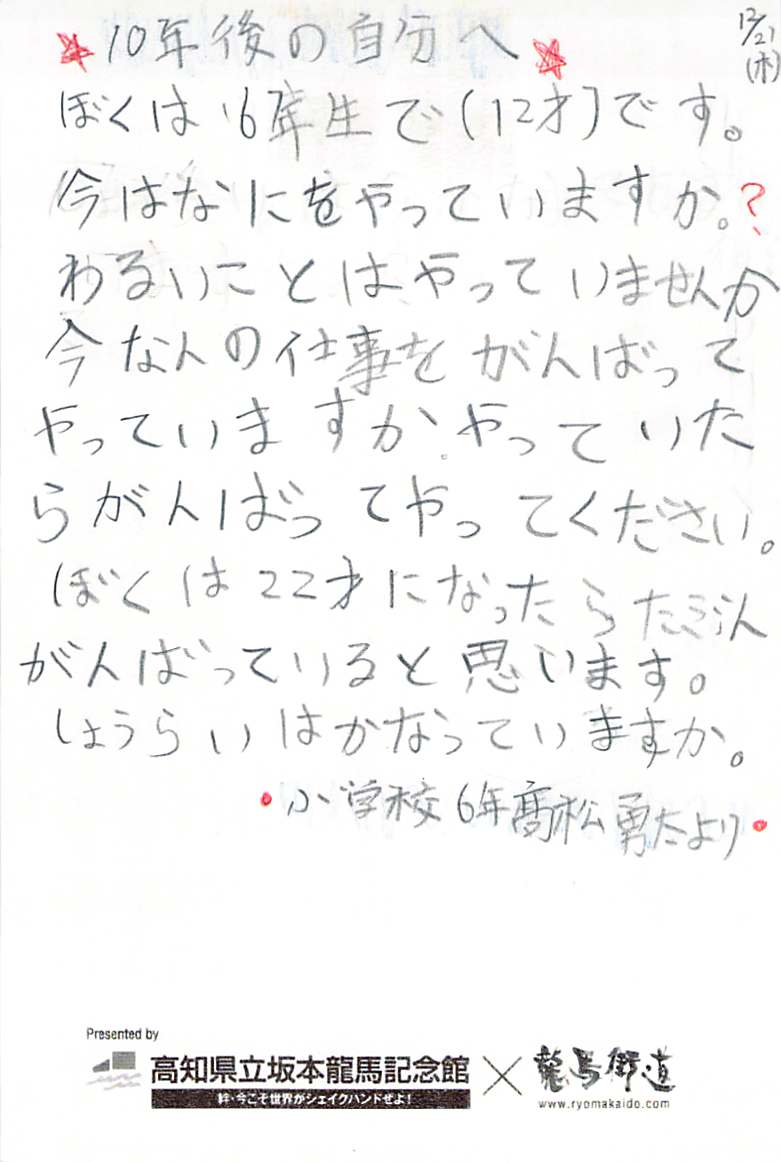 12/21
(木)
10年後の自分へ
ぼくは6年生で(12才)です。
今はなにをやっていますか。?
わるいことはやっていませんか
今なんの仕事をがんばって
やっていますか。やっていた
らがんばってやってください。
ぼくは22才になったらたぶん
がんばっていると思います。
しょうらいはかなっていますか。
・小学校6年髙松勇太より・
Presented by
高知県立坂本龍馬記念館×龍馬街道
絆・今こそ世界がシェイクハンドせよ!
www.ryomakaido.com